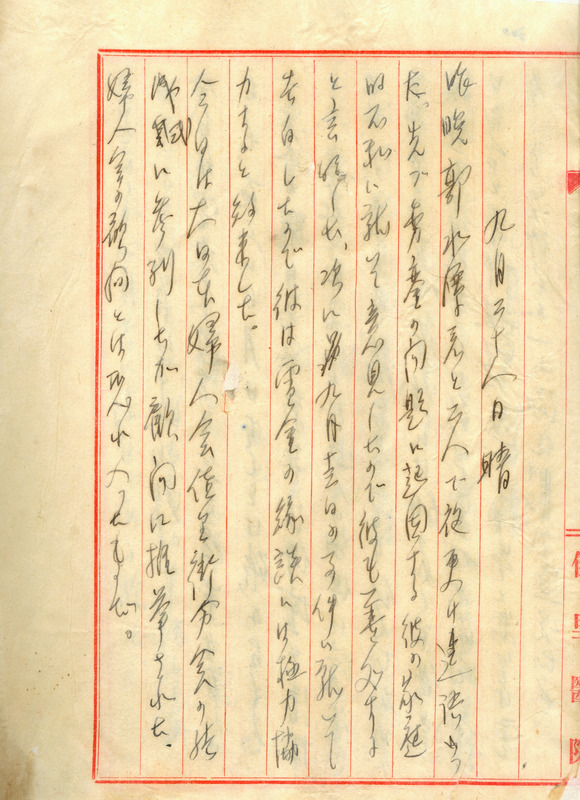 九月二十八日 晴
昨晩郭水潭君と二人で夜更け迄語
た。先づ剪童の問題に起因する彼の家庭
的不和に就て意見したので彼も善処する
と言明した、次に九月十五日の事件に就いて
告白したので彼は雪金の縁談には極力協
力すると約束した。
今日は大日本婦人会佳里街分会の結
成式に参列したが顧問に推薦された。
婦人会の顧問とは恐れ入つたものだ。
佳里醫院